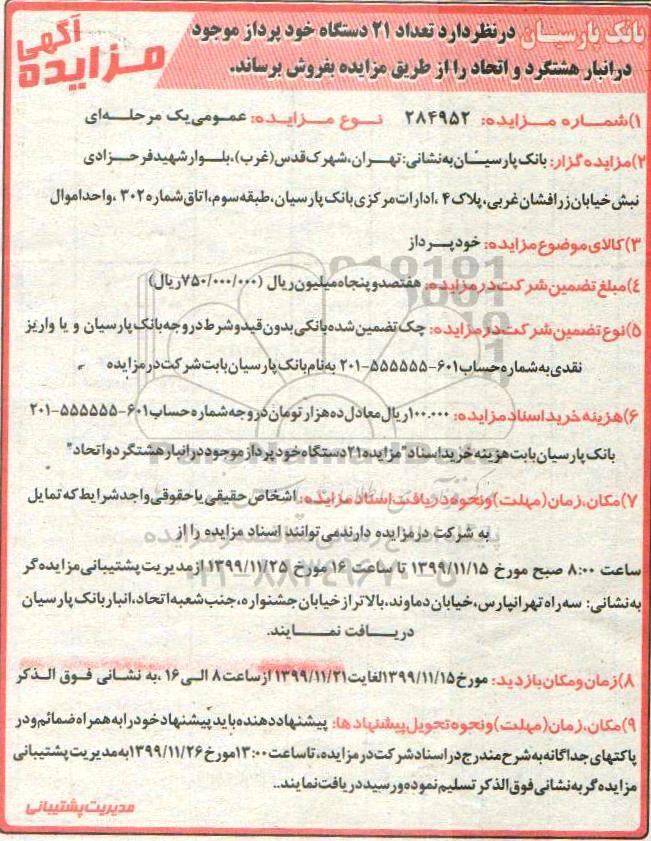 آگهی
مزایده
بانک پارسیان درنظردارد تعداد ۲۱ دستگاه خود پرداز موجود
درانبار هشتگرد و اتحاد را از طریق مزایده بفروش برساند.
۱)شماره مزایده: ۲۸۴۹۵۲ نوع مزایده: عمومی یک مرحله‌ای
۲)مزایده گزار: بانک پارسیان به نشانی: تهران، شهرک قدس (غرب)، بلوار شهید فرحزادی
نبش خیابان زرافشان غربی، پلاک ۴، ادارات مرکزی بانک پارسیان، طبقه سوم، اتاق شماره ۳۰۲، واحد اموال
۳)کالای موضوع مزایده: خودپرداز
۴)مبلغ تضمین شرکت در مزایده: هفتصدو پنجاه میلیون ریال (۷۵۰/۰۰۰/۰۰۰ریال)
۵)نوع تضمین شرکت در مزایده: چک تضمین شده بانکی بدون قید و شرط در وجه بانک پارسیان و یا واریز
نقدی به شماره حساب ۶۰۱-۵۵۵۵۵۵-۲۰۱ به نام بانک پارسیان بابت شرکت در مزایده
۶)هزینه خرید اسناد مزایده: ۱۰۰.۰۰۰ ریال معادل ده هزار تومان در وجه شماره حساب ۶۰۱-۵۵۵۵۵۵-۲۰۱
بانک پارسیان بابت هزینه خرید اسناد "مزایده ۲۱ دستگاه خود پرداز موجود در انبار هشتگرد و اتحاد"
۷)مکان، زمان (مهلت) و نحوه دریافت اسناد مزایده: اشخاص حقیقی یا حقوقی واجد شرایط که تمایل
به شرکت در مزایده دارند می توانند اسناد مزایده را از
ساعت ۸:۰۰ صبح مورخ ۱۳۹۹/۱۱/۱۵ تا ساعت ۱۶ مورخ ۱۳۹۹/۱۱/۲۵ از مدیریت پشتیبانی مزایده گر
به نشانی: سه راه تهرانپارس، خیابان دماوند، بالاتر از خیابان جشنواره، جنب شعبه اتحاد، انبار بانک پارسیان
دریافت نمایند.
۸)زمان و مکان بازدید: مورخ ۱۳۹۹/۱۱/۱۵ لغایت ۱۳۹۹/۱۱/۲۱ از ساعت ۸ الی ۱۶، به نشانی فوق الذکر
۹)مکان، زمان (مهلت) و نحوه تحویل پیشنهادها: پیشنهاد دهنده باید پیشنهاد خود را به همراه ضمائم و در
پاکتهای جداگانه به شرح مندرج در اسناد شرکت در مزایده، تا ساعت ۱۳:۰۰ مورخ ۱۳۹۹/۱۱/۲۶ به مدیریت پشتیبانی
مزایده گر به نشانی فوق الذکر تسلیم نموده و رسید دریافت نمایند..
مدیریت پشتیبانی